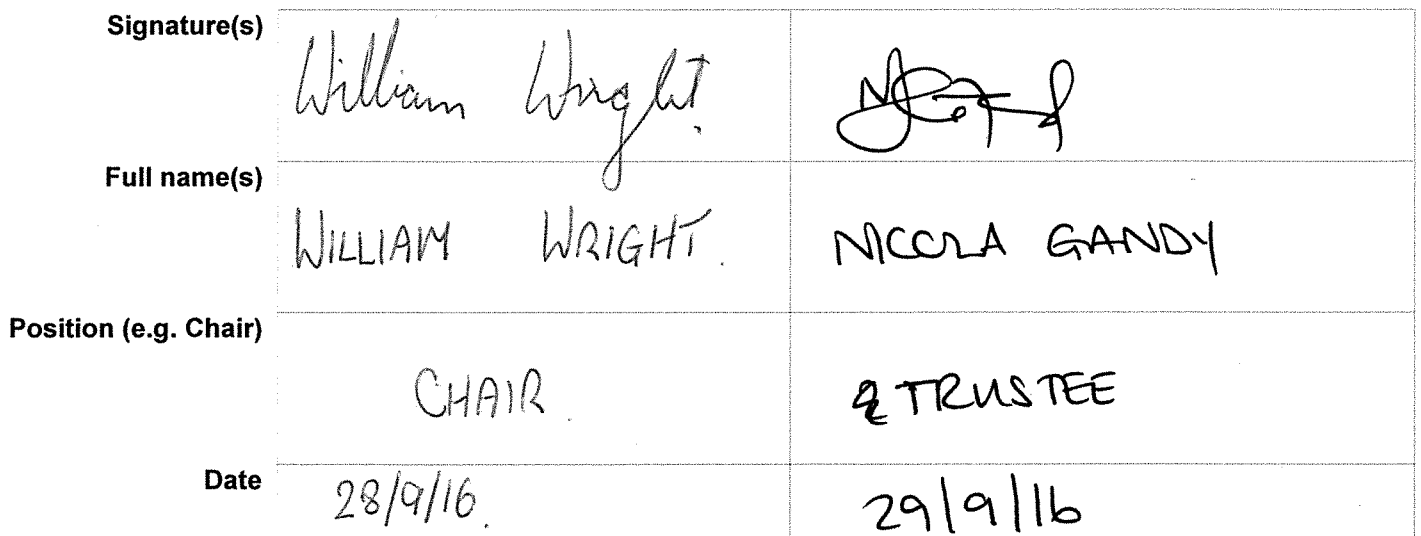 Signature(s)
William Wright.
Full name(s)
WILLIAM WRIGHT. NICOLA GANDY
Position (e.g. Chair)
CHAIR. TRUSTEE
Date
28/9/16. 29/9/16